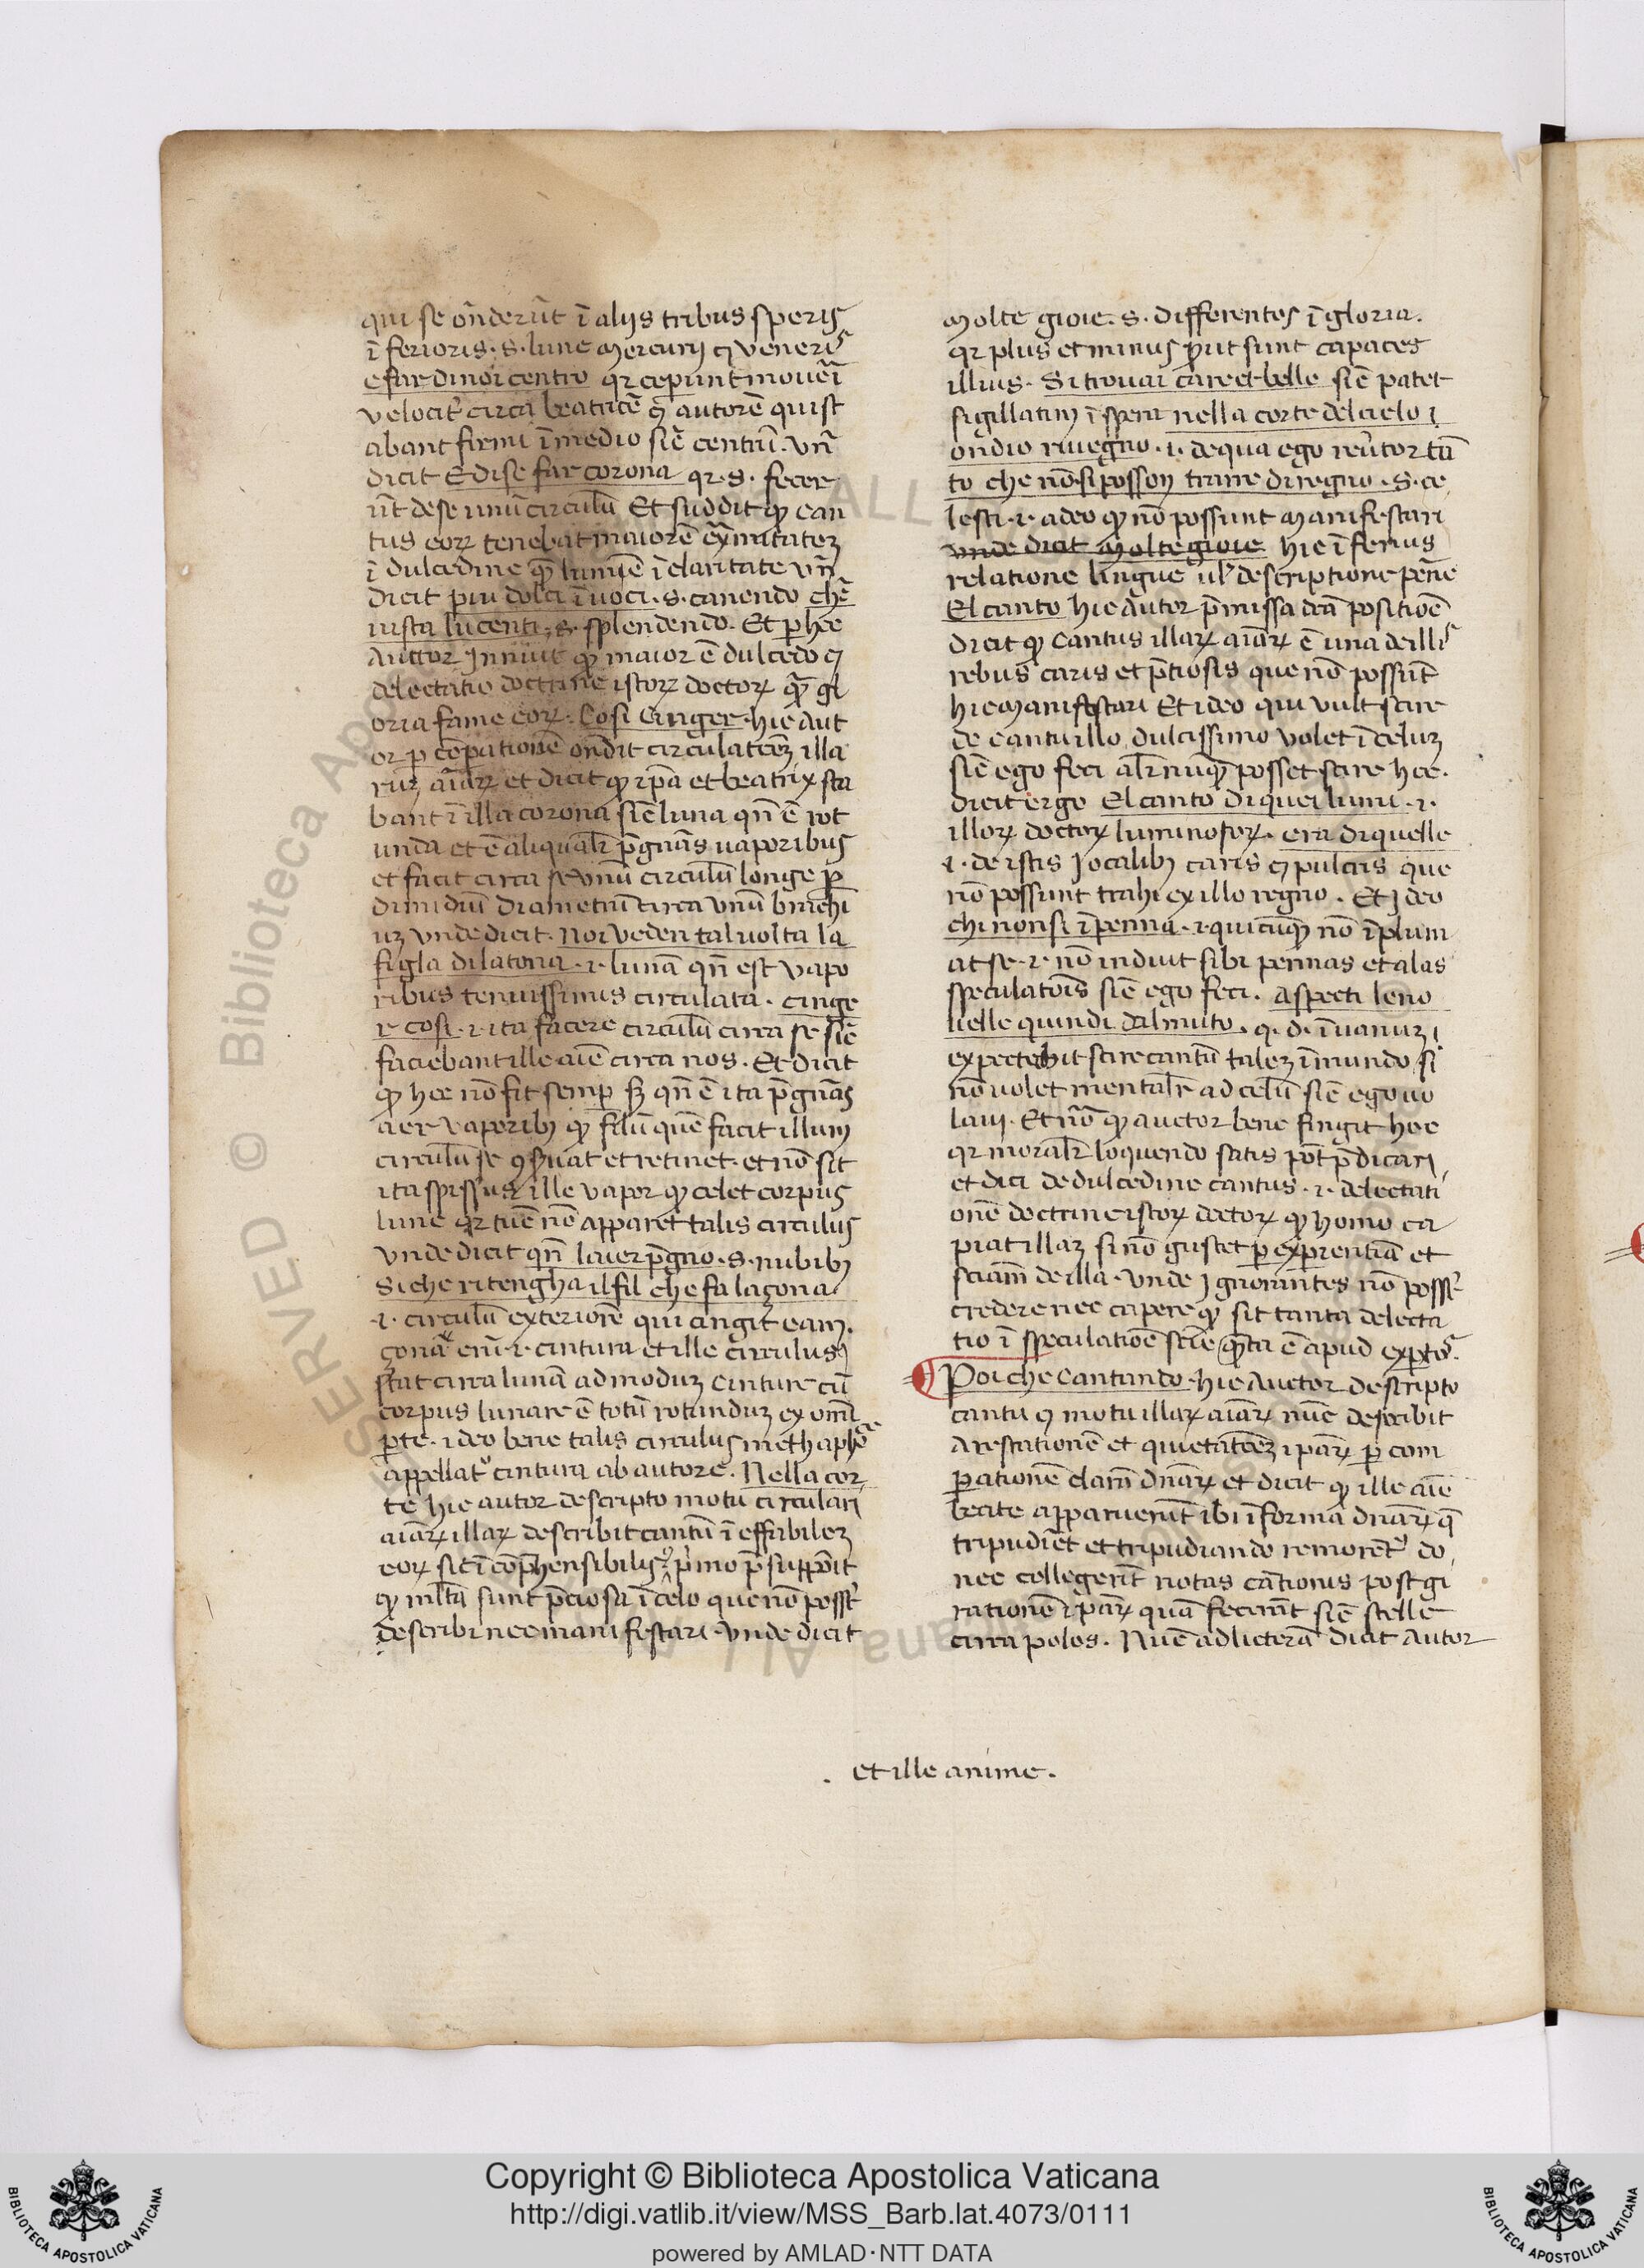 qui se ōnderūt ī aliis tribus speris
īferioris .s. lune mercurij ⁊ veneris
e far di noi centro qr ceperunt moueri
velocitˀ circa beatricē ⁊ autorē qui st
abant firmi ī medio sic̄ centrū. vn̄
dicit E di se far corona qr .s. fecer
ūt de se unū circulū Et subdit qꝫ can
tus eoꝝ tenebat maiorē
ī dulcedine qꝫ lumē ī claritate vn̄
dicit piu dolci ī uoci .s. canendo che
iusta lucenti .s. splendendo. Et p hec
Auctor Innuit qꝫ maior ē dulcedo ⁊
delectatio doctrine istoꝝ doctoꝝ qꝫ gl
oria fame eoꝝ. Cosi Cinger. hic Aut
or p cōpationē ōndit circulatōeꝫ illa
rum aīaꝝ et dicit qꝫ ipā et beatrix sta
bant ī illa corona sic̄ luna qn̄ ē rot
unda et ē aliqualr̄ p̄gnās uaporibus
et facit circa se unū circulū longe p
dimidiū diametrū circa unū brachi
uꝫ vnde dicit. Noi veden tal uolta la
figla dilatona .i. lunā qn̄ est vapo
ribus tenuissimis circulata. cinge
r cosi .i. ita facere circulū circa se sic̄
faciebant ille aīe circa nos. Et dicit
qꝫ hec nō fit semp sꝫ qn̄ ē ita p̄gnās
aer vaporibꝫ qꝫ filū quē facit illum
circulū se ꝯseruat et retinet. et nō sit
ita spissus ille vapor qꝫ celet corpus
lune qr tūc nō apparet talis circulus
Vnde dicit qn̄ laier p̄gno .s. nubibꝫ
Si che ritengha il fil che fa la çona
.i. circulū exteriorē qui cingit eam.
çona enī .i. cintura et ille circulus
stat circa lunā ad moduꝫ cinture cū
corpus lunare ē totū rotunduꝫ ex omī
pte. ideo bene talis circulus methaphōe
appellatˀ cintura ab autore. Nella cor
te hic autor descripto motu circulari
aīaꝝ illaꝝ describit cantū ī effabileꝫ
eoꝝ sic īcōp̄hensibilis p̄mo p̄supponit
qꝫ ml̄ta sunt p̄ciosa ī celo que nō possˀ
describi nec manifestari. vnde dicit
Molte gioie .s. differentes ī gloria.
qr plus et minus prout sunt capaces
illius. Si trouai care et belle sic̄ patet
sigillatim ī speris nella corte del cielo
ondio riuegno .i. de qua ego reūtor tū
to che nō si posson trarre di regno .s. ce
lesti .i. adeo qꝫ nō possunt manifestari
vnde dicit Molte gioie hic īferius
relatione lingue ul̄ descriptione pēne
El canto hic Autor p̄missa dcā positiōe
dicit qꝫ cantus illaꝝ aīaꝝ ē una de illis
rebus caris et p̄tiosis que nō possūt
hic manifestari Et ideo qui vult scire
de cantu illo dulcissimo volet ī celuꝫ
sic̄ ego feci al̄r nūqꝫ posset scire hec.
dicit ergo El canto di quei lumi .i.
illoꝝ doctoꝝ luminosoꝝ. era di quelle
.i. de istis Iocalibꝫ caris ⁊ pulcris que
nō possunt trahi ex illo regno. Et Ideo
chi non si ī penna .i. quicūqꝫ nō īplum
at se .i. nō induit sibi pennas et alas
speculatōis sic̄ ego feci. Aspecti leno
uelle quindi dal muto .q. d. ī vanuꝫ
expectabit scire cantū taleꝫ ī mundo si
nō uolet mentalr̄ ad celū sic̄ ego uo
laui. Et nō qꝫ auctor bene fingit hec
qr moralr̄ loquendo satis pōt p̄dicari
et dici de dulcedine cantus .i. delectati
onē doctrine istoꝝ doctoꝝ qꝫ homo ca
piat illaꝫ si nō gustet p expientiā et
sciam̄ de illa. vnde Ignorantes nō possˀ
credere nec capere qꝫ sit tanta delecta
tio ī speculatiōe sciē qꝫta ē apud exptos.
Poi che Cantando. hic Auctor descripto
cantu ⁊ motu illaꝝ aīaꝝ nūc describit
Arestationē et quietatōeꝫ ipaꝝ p com
pationē claram dn̄aꝝ et dicit qꝫ ille aīe
beate apparuerūt ibi ī forma dn̄aꝝ q̄
tripudiēt et tripudiando remorētˀ do
nec collegerīt notas cātionis post gi
rationē ipaꝝ quā fecerūt sic̄ stelle
circa polos. Nūc ad licterā dicit Autor
. et ille anime.
Copyright © Biblioteca Apostolica Vaticana
http://digi.vatlib.it/view/MSS_Barb.lat.4073/0111
powered by AMLAD·NTT DATA
BIBLIOTECA APOSTOLICA VATICANA
BIBLIOTECA APOSTOLICA VATICANA